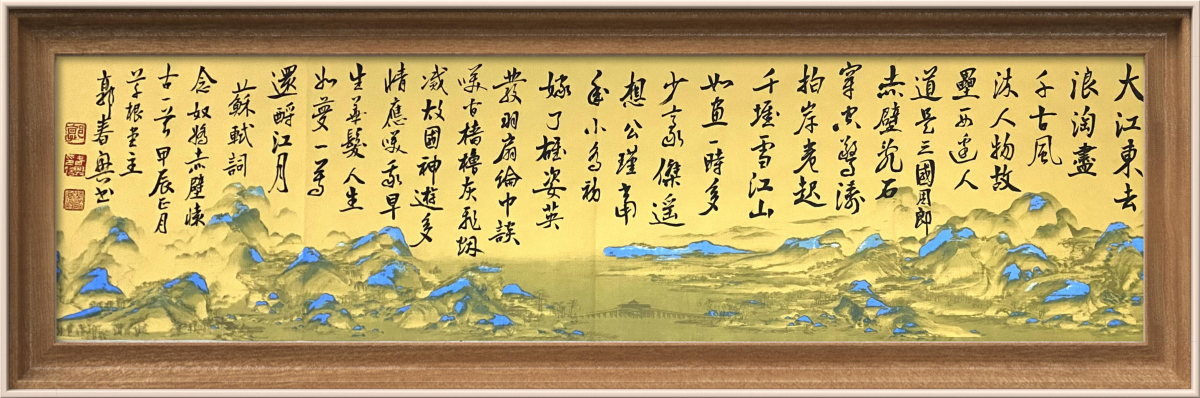 大江東去
浪淘盡
千古風
流人物故
壘西邊人
道是三國周郎
赤壁亂石
穿空驚濤
拍岸卷起
千堆雪江山
如畫一時多
少豪傑遥
想公瑾當
年小喬初
嫁了雄姿英
發羽扇綸巾談
笑間檣櫓灰飛烟
滅故國神遊多
情應笑我早
生華髮人生
如夢一尊
還酹江月
蘇軾詞
念奴嬌赤壁懷
古一首甲辰正月
草根堂主
郭春興書